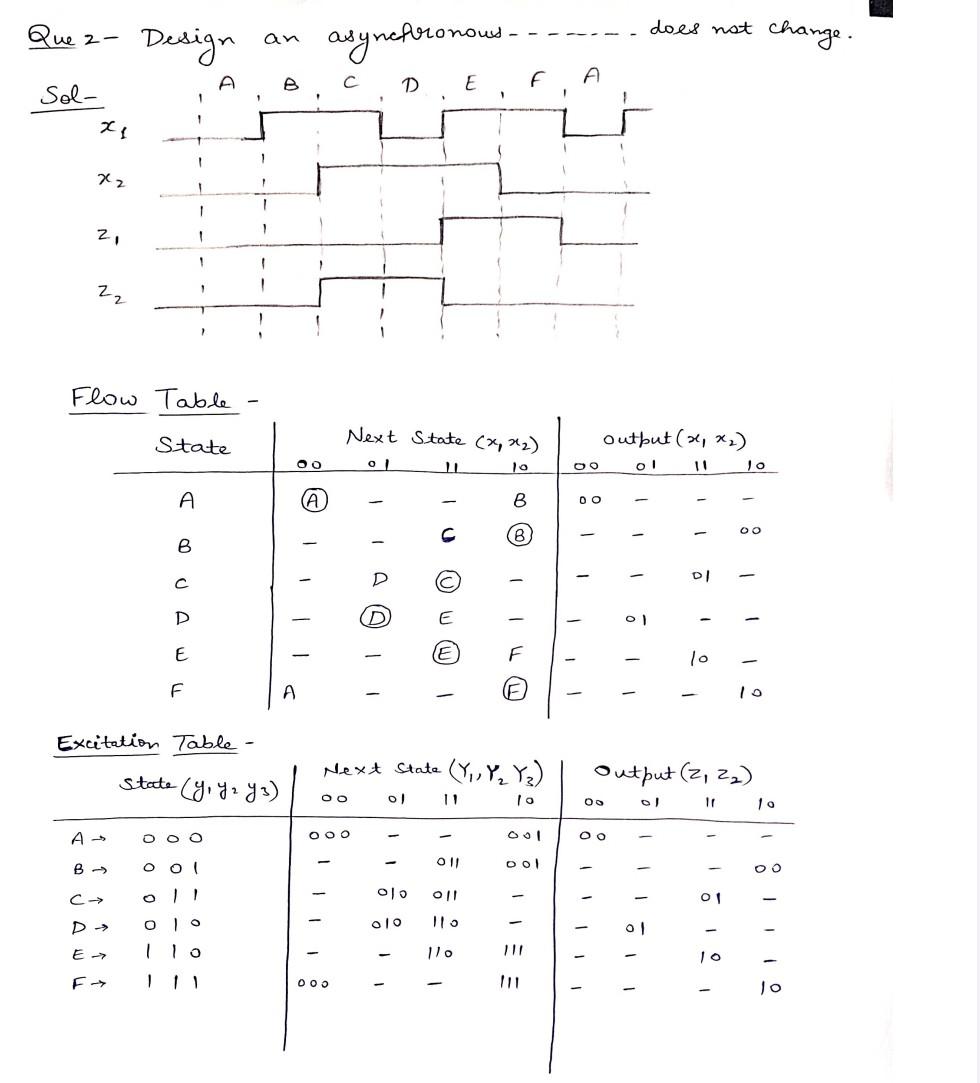 Que 2- Design an asynchronous-------- does not change.
Sol-
A B C D E F A
x1
x2
z1
z2
Flow Table -
State Next State (x1 x2) output (x1 x2)
00 01 11 10 00 01 11 10
A A - - B 00 - - -
B - - C B - - - 00
C - D C - - - 01 -
D - D E - - 01 - -
E - - E F - - 10 -
F A - - F - - - 10
Excitation Table -
State (y1 y2 y3) Next State (Y1, Y2 Y3) Output (z1 z2)
00 01 11 10 00 01 11 10
A → 000 000 - - 001 00 - - -
B → 001 - - 011 001 - - - 00
C → 011 - 010 011 - - - 01 -
D → 010 - 010 110 - - 01 - -
E → 110 - - 110 111 - - 10 -
F → 111 000 - - 111 - - - 10